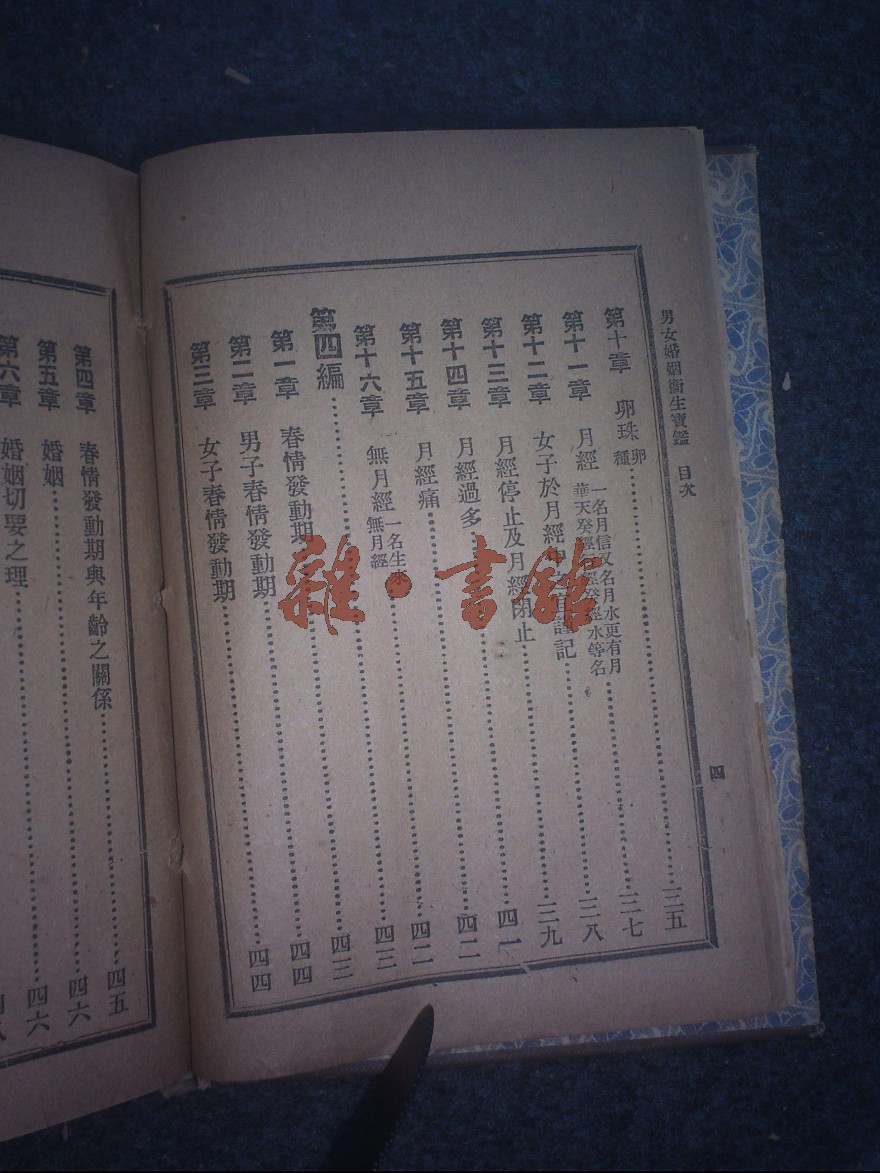 男女婚姻衞生寶鑑 目次
四
第十章 卵珠 卵種 三五
第十一章 月經 一名月信又名月水更有月華天癸經 經癸徑水等名 三七
第十二章 女子於月經 謹記 三八
第十三章 月經停止及月經閉止 三九
第十四章 月經過多 四一
第十五章 月經痛 四二
第十六章 無月經 一名生來無月經 四二
第四編 四三
第一章 春情發動期 四三
第二章 男子春情發動期 四四
第三章 女子春情發動期 四四
第四章 春情發動期與年齡之關係 四五
第五章 婚姻 四六
第六章 婚姻切要之理 四六
雜·書館